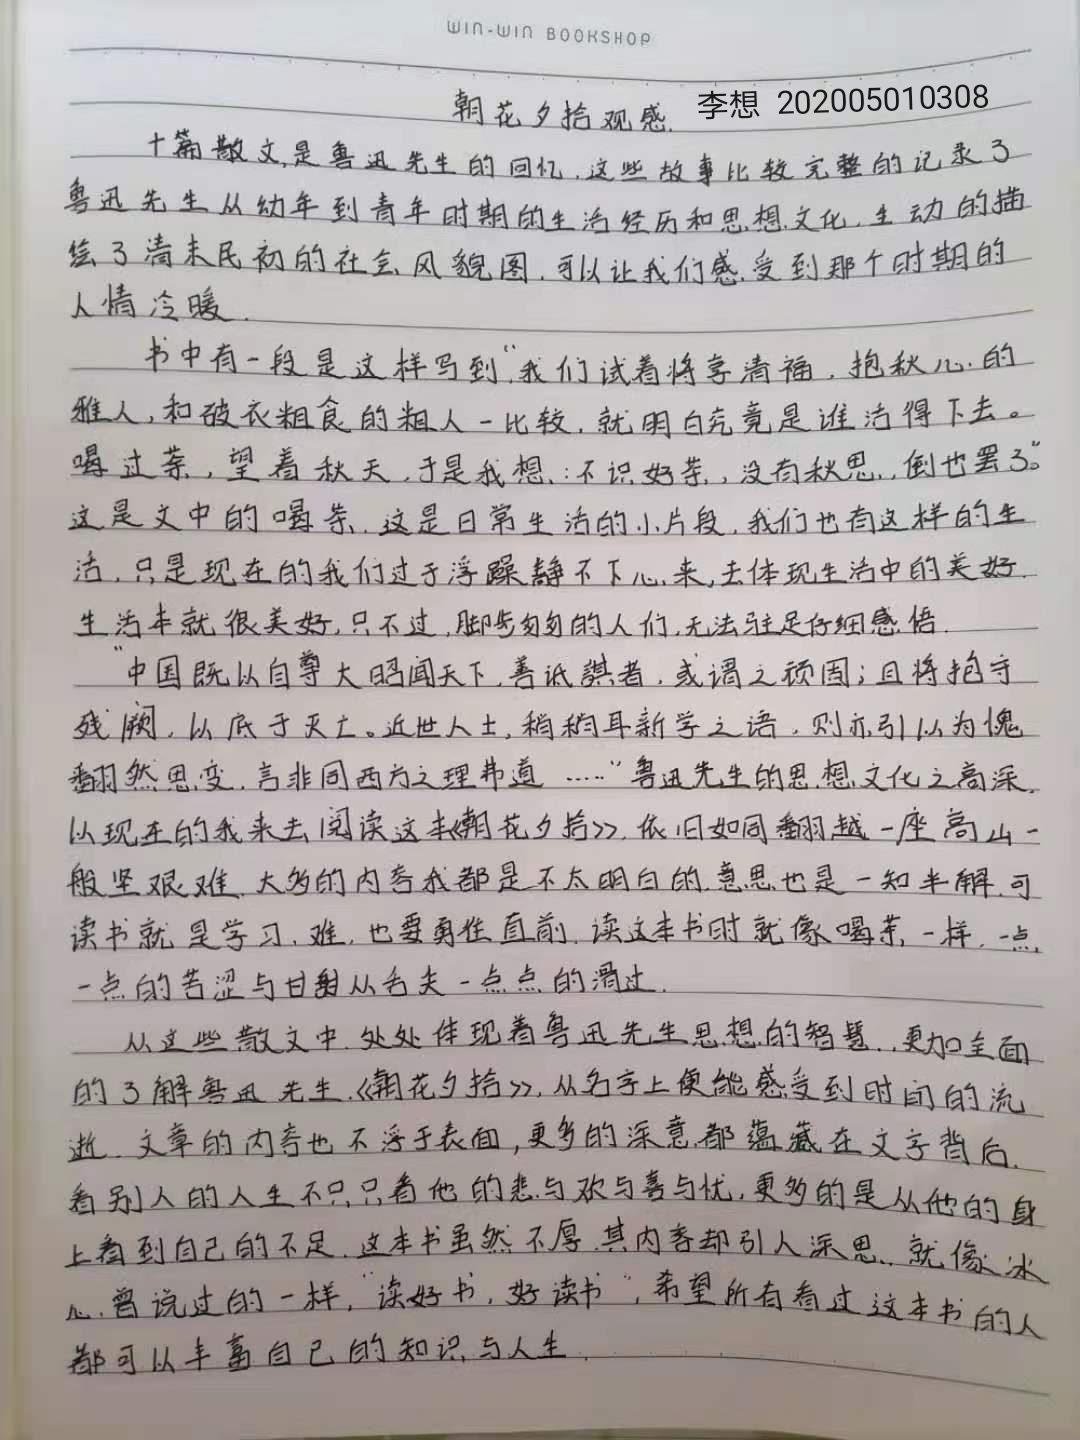 WIN-WIN BOOKSHOP
朝花夕拾观感. 李想 202005010308
十篇散文,是鲁迅先生的回忆.这些故事比较完整的记录了
鲁迅先生从幼年到青年时期的生活经历和思想文化,生动的描
绘了清末民初的社会风貌图,可以让我们感受到那个时期的
人情冷暖.
书中有一段是这样写到"我们试着将享清福,抱秋心的
雅人,和破衣粗食的粗人一比较,就明白究竟是谁活得下去。
喝过茶,望着秋天,于是我想:不识好茶,没有秋思,倒也罢了。"
这是文中的喝茶,这是日常生活的小片段,我们也有这样的生
活,只是现在的我们过于浮躁静不下心来,去体现生活中的美好.
生活本就很美好,只不过,脚步匆匆的人们,无法驻足仔细感悟.
"中国既以自尊大昭闻天下,善诋諆者,或谓之顽固;且将抱守
残阙,以底于灭亡。近世人士,稍稍耳新学之语,则亦引以为愧
翻然思变,言非同西方之理弗道……"鲁迅先生的思想文化之高深,
以现在的我来去阅读这本《朝花夕拾》,依旧如同翻越一座高山一
般坚艰难.大多的内容我都是不太明白的.意思也是一知半解.可
读书就是学习,难,也要勇往直前.读这本书时就像喝茶一样,一点
一点的苦涩与甘甜从舌尖一点点的滑过.
从这些散文中,处处体现着鲁迅先生思想的智慧,更加全面
的了解鲁迅先生.《朝花夕拾》,从名字上便能感受到时间的流
逝.文章的内容也不浮于表面,更多的深意都蕴藏在文字背后.
看别人的人生不只只看他的悲与欢与喜与忧,更多的是从他的身
上看到自己的不足.这本书虽然不厚,其内容却引人深思,就像冰
心曾说过的一样,"读好书,好读书",希望所有看过这本书的人
都可以丰富自己的知识与人生.